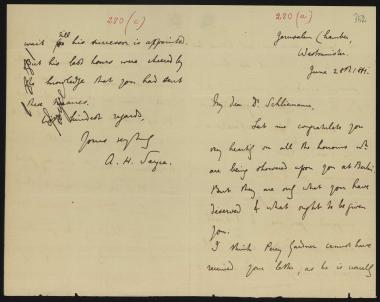 280 (a)
Jerusalem Chamber,
Westminster.
June 28th 1881.
My dear Dr Schliemann,
Let me congratulate you
very heartily on all the honours wh.
are being showered upon you at Berlin.
But they are only what you have
deserved & what ought to be given
you.
I think Percy Gardner cannot have
received your letter, as he is
280 (c)
wait till his successor is appointed.
But his last hours were cheered by
the knowledge that you had sent
these
kindest regards,
Yours very truly
A. H. Sayce.